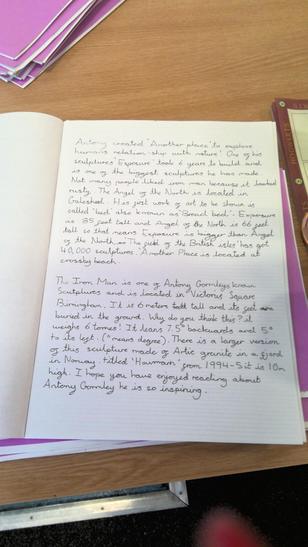 Antony created 'Another place' to explore
humans relation-ship with nature! One of his
sculptures' Exposure' took 6 years to build and
is one of the biggest sculptures he has made.
Not many people liked iron man because it looked
rusty. The Angel of the North is located in
Gateshead. His first work of art to be shown is
called 'bed' also known as 'Bread bed'. Exposure
is 85 feet tall and Angel of the North is 66 feet
tall so that means Exposure is bigger than Angel
of the North. The field of the British isles' has got
40,000 sculptures. Another Place is located at
crossby beach.
The Iron Man is one of Antony Gormleys known
Sculptures and is located in 'Victorus Square
Birmingham. It is 6 meters tall and its feet are
buried in the ground. Why do you think this? it
weighs 6 tonnes! It leans 7.5° backwards and 5°
to its left. (° means degree). There is a larger version
of this sculpture made of Artic granite in a fjord
in Norway titled 'Havmann' from 1994-5 it is 10m
high. I hope you have enjoyed reacting about
Antony Gormley he is so inspiring.